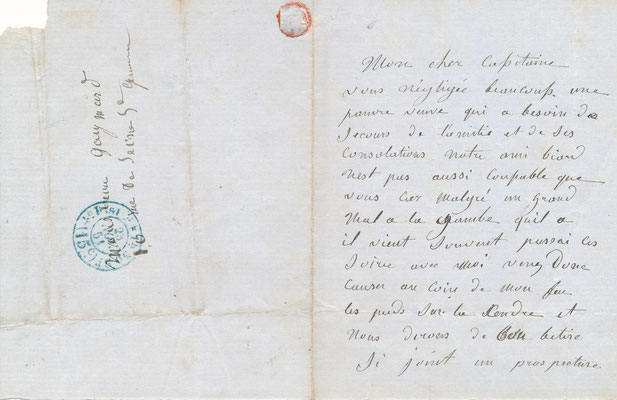 Mon cher Capitaine
vous négligée beaucoup une
pauvre veuve qui a besoin de
Secours de l'amitié et de Ses
Consolations notre ami biard
n'est pas aussi Coupable que
vous Car malgré un grand
Mal a la Jambe qu'il a
il vient Souvent passai les
Soirée avec Moi venez Donc
Causer au Coin de Mon feu
les pieds Sur la Cendre et
Nous dirons de betise
Si joint un prospecture
gaymard
rue De Seine St